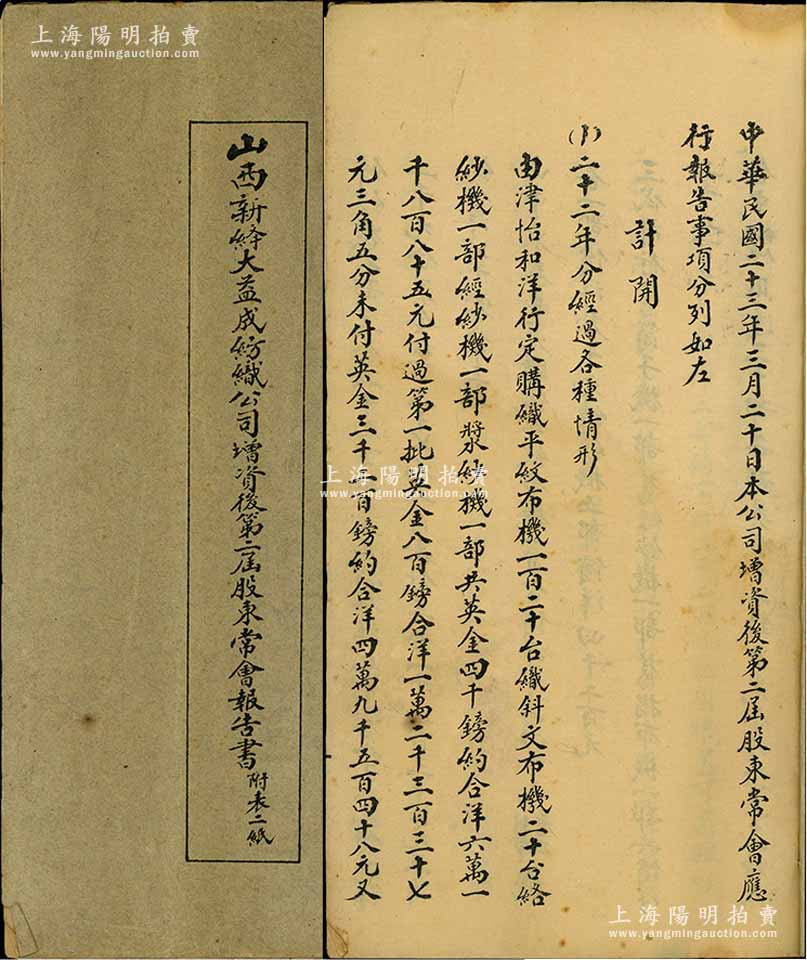 上海陽明拍賣
www.yangmingauction.com
山西新絳大益成紡織公司增資後第二屆股東常會報告書附表二紙
中華民國二十三年三月二十日本公司增資後第二屆股東常會應
行報告事項分列如左
計開
(1)二十二年分經過各種情形
由津怡和洋行定購織平紋布機一百二十台織斜文布機二十台絡
紗機一部經紗機一部漿紗機一部共英金四千鎊約合洋六萬一
千八百八十五元付過第一批英金八百鎊合洋一萬二千三百三十七
元三角五分未付英金三千二百鎊約合洋四萬九千五百四十八元又
上海陽明拍賣
www.yangmingauction.com
上海陽明拍賣
www.yangmingauction.com